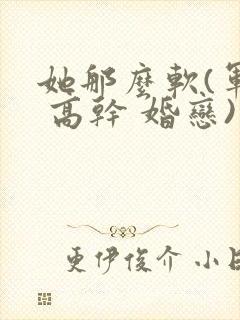 她那麼軟(軍
高幹 婚戀)
更伊俊介 小日